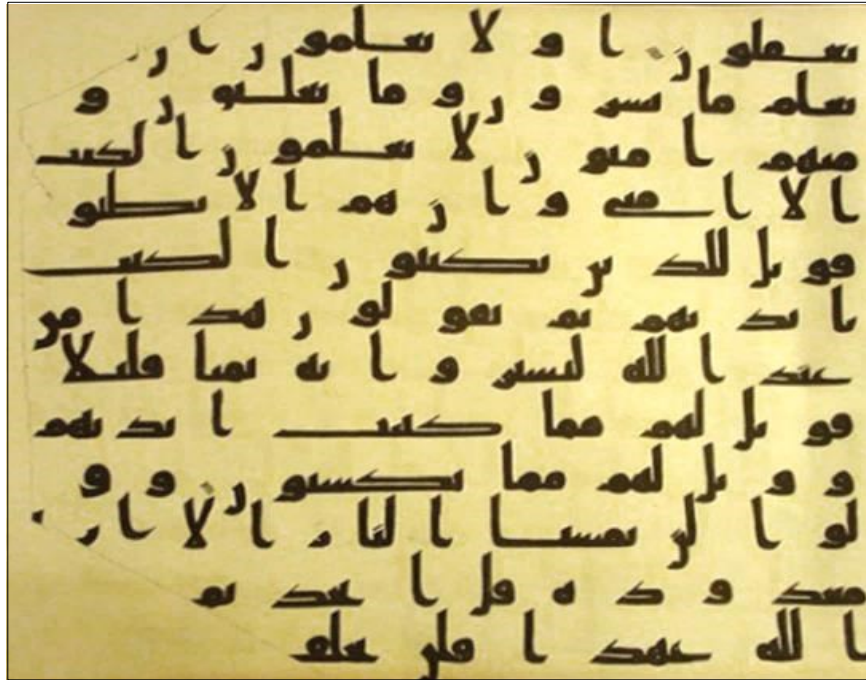 تعقلون اولا يعلمون ان
يعلم ما يسرون وما يعلنون و
منهم اميون لا يعلمون الكتب
الا امنى وان هم الا يظنو
فويل للذين يكتبون الكتب
بايديهم ثم يقولون هذا من
عند الله ليشتروا به ثمنا قليلا
فويل لهم مما كتبت ايديهم
وويل لهم مما يكسبون و
لوا لن تمسنا النار الا ايا
معدوده قل اتخذتم
الله عهدا فلن يخلف